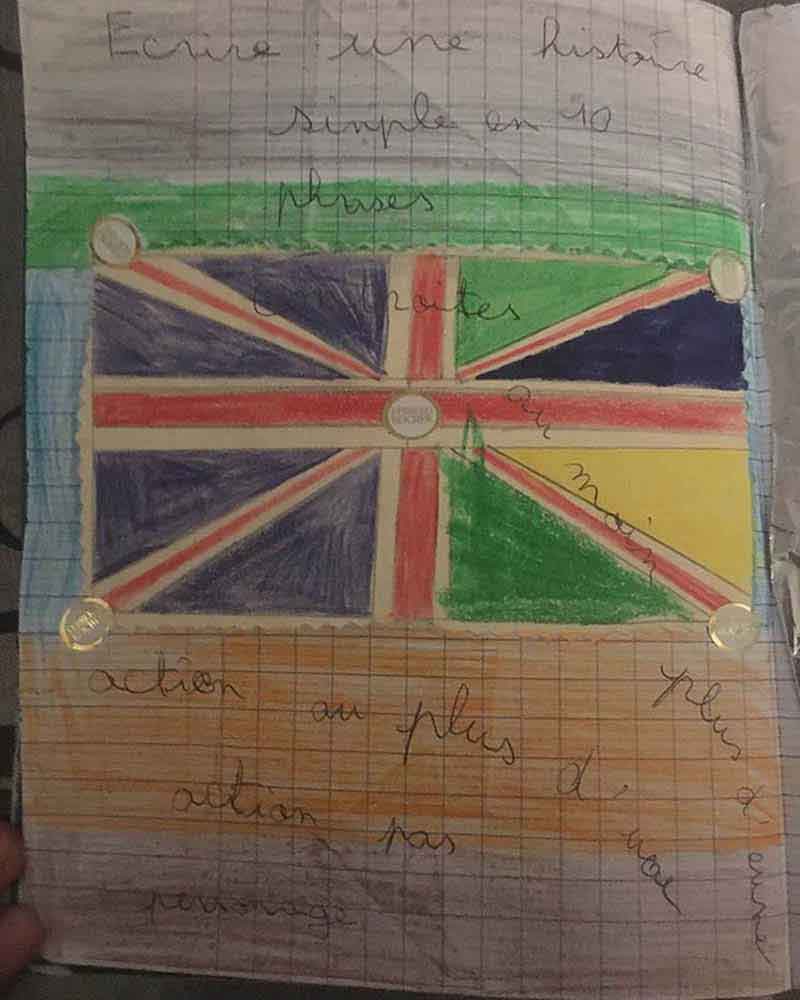 Ecrire une histoire
simple en 10
phrases
Contraites
au
main
action au plus
plus d'une
action pas
personage